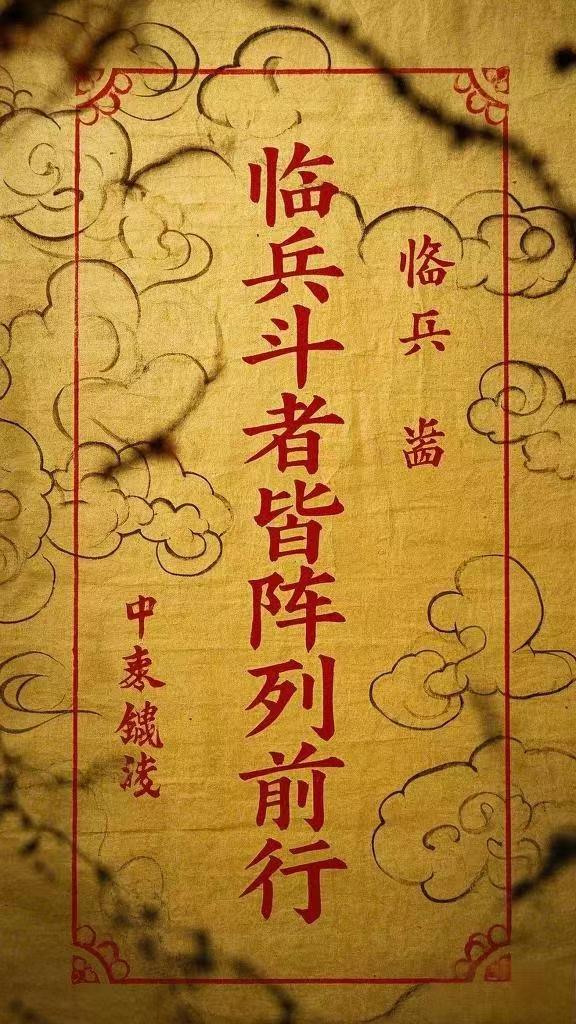 临兵斗者皆阵列前行
临兵
中